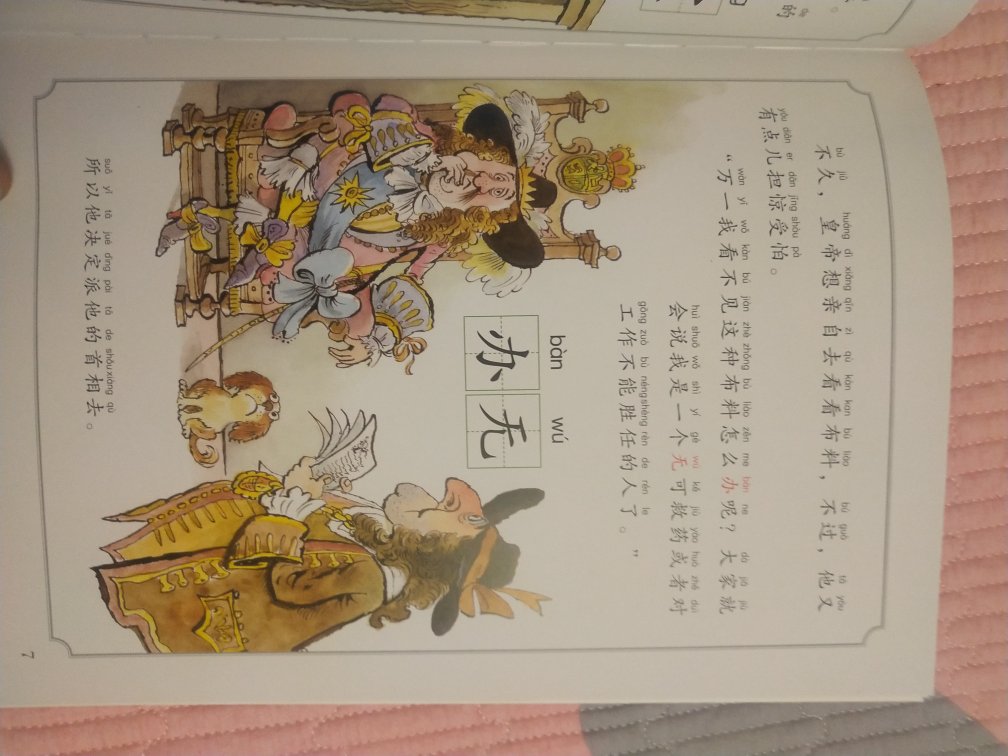 bù jiǔ huáng dì xiǎng qīn zì qù kàn kan bù liào bú guò tā yòu
不久，皇帝想亲自去看看布料，不过，他又
yǒu diǎn er dān jīng shòu pà
有点儿担惊受怕。
wàn yī wǒ kàn bú jiàn zhè zhǒng bù liào zěn me bàn ne dà jiā jiù
“万一我看不见这种布料怎么办呢？大家就
huì shuō wǒ shì yí gè wú kě jiù yào huò zhě duì
会说我是一个无可救药或者对
gōng zuò bù néng shèng rèn de rén le
工作不能胜任的人了。”
bàn wú
办无
suǒ yǐ tā jué dìng pài tā de shǒu xiàng qù
所以他决定派他的首相去。
7
de
的